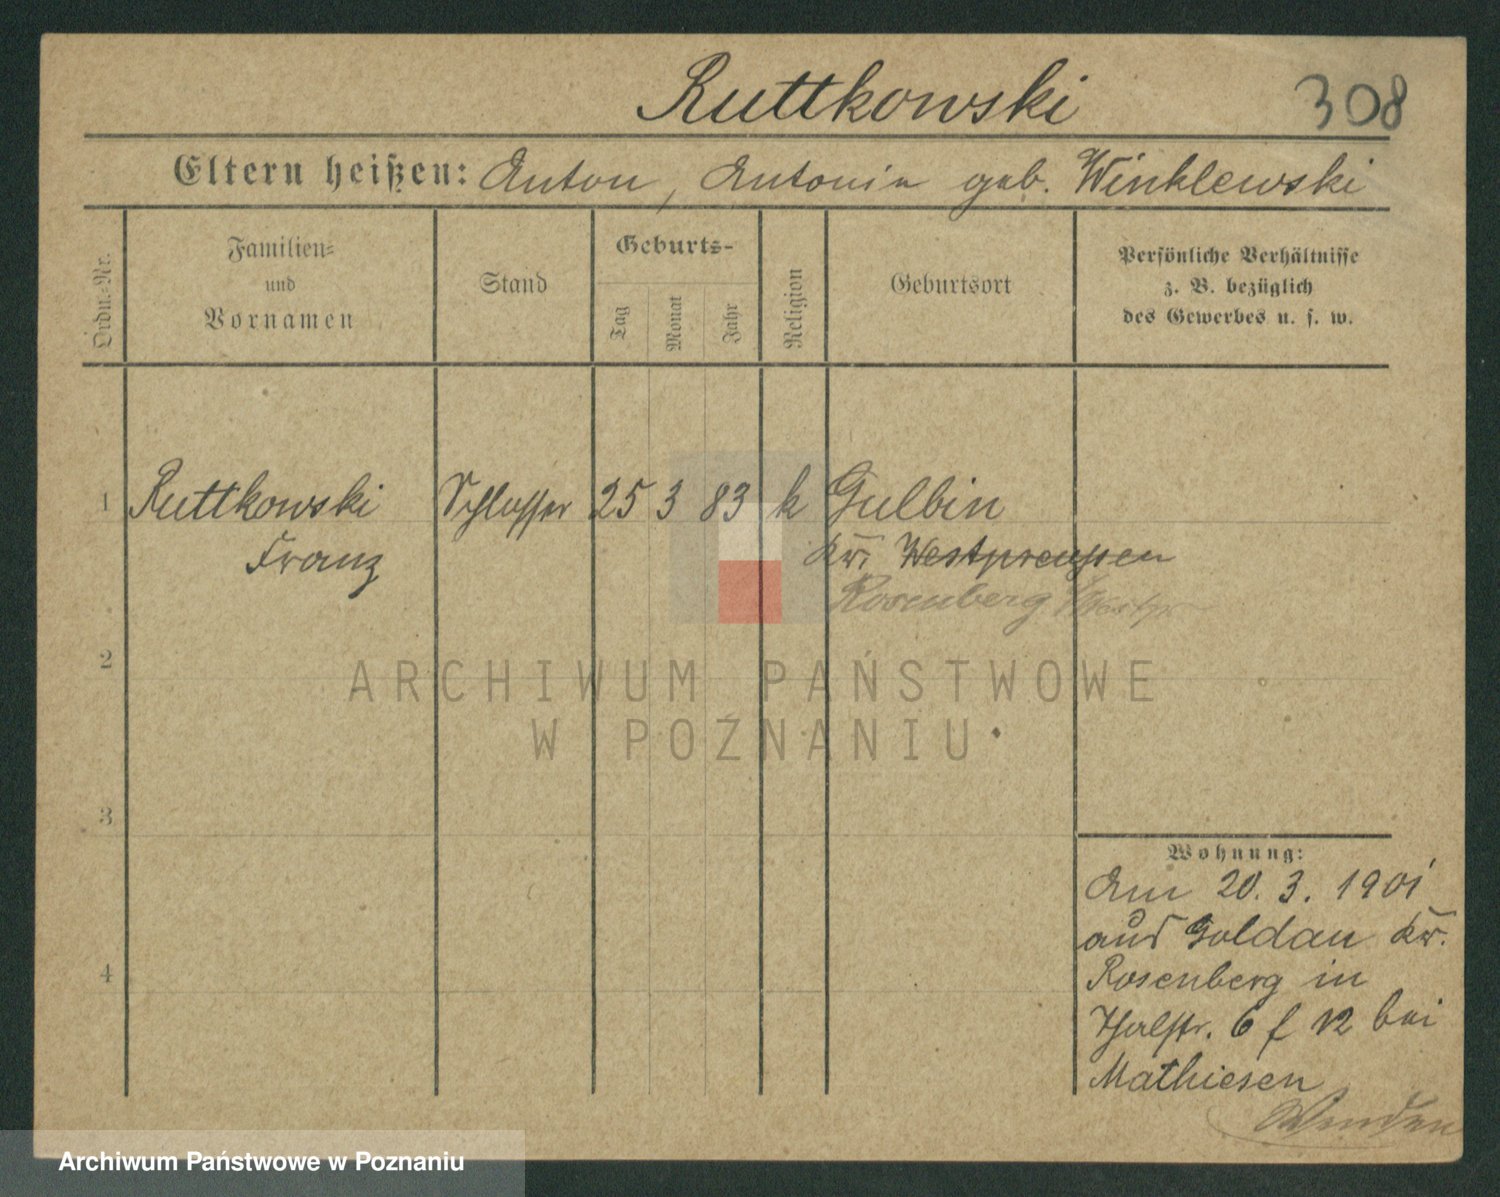 Ruttkowski 308
Eltern heißen: Anton, Antonie geb. Winklewski
Ordn.-Nr.
Familien-
und
Vornamen
Stand
Geburts-
Tag
Monat
Jahr
Religion
Geburtsort
Persönliche Verhältnisse
z. B. bezüglich
des Gewerbes u. s. w.
1 Ruttkowski Schlosser 25 3 83 k Gulbin
Franz Kr. Westpreussen
Rosenberg Westpr
2
ARCHIWUM PAŃSTWOWE
W POZNANIU
3
Wohnung:
Am 20. 3. 1901
aus Goldau Kr.
4
Rosenberg in
Thalstr. 6 f 12 bei
Mathiesen
Archiwum Państwowe w Poznaniu